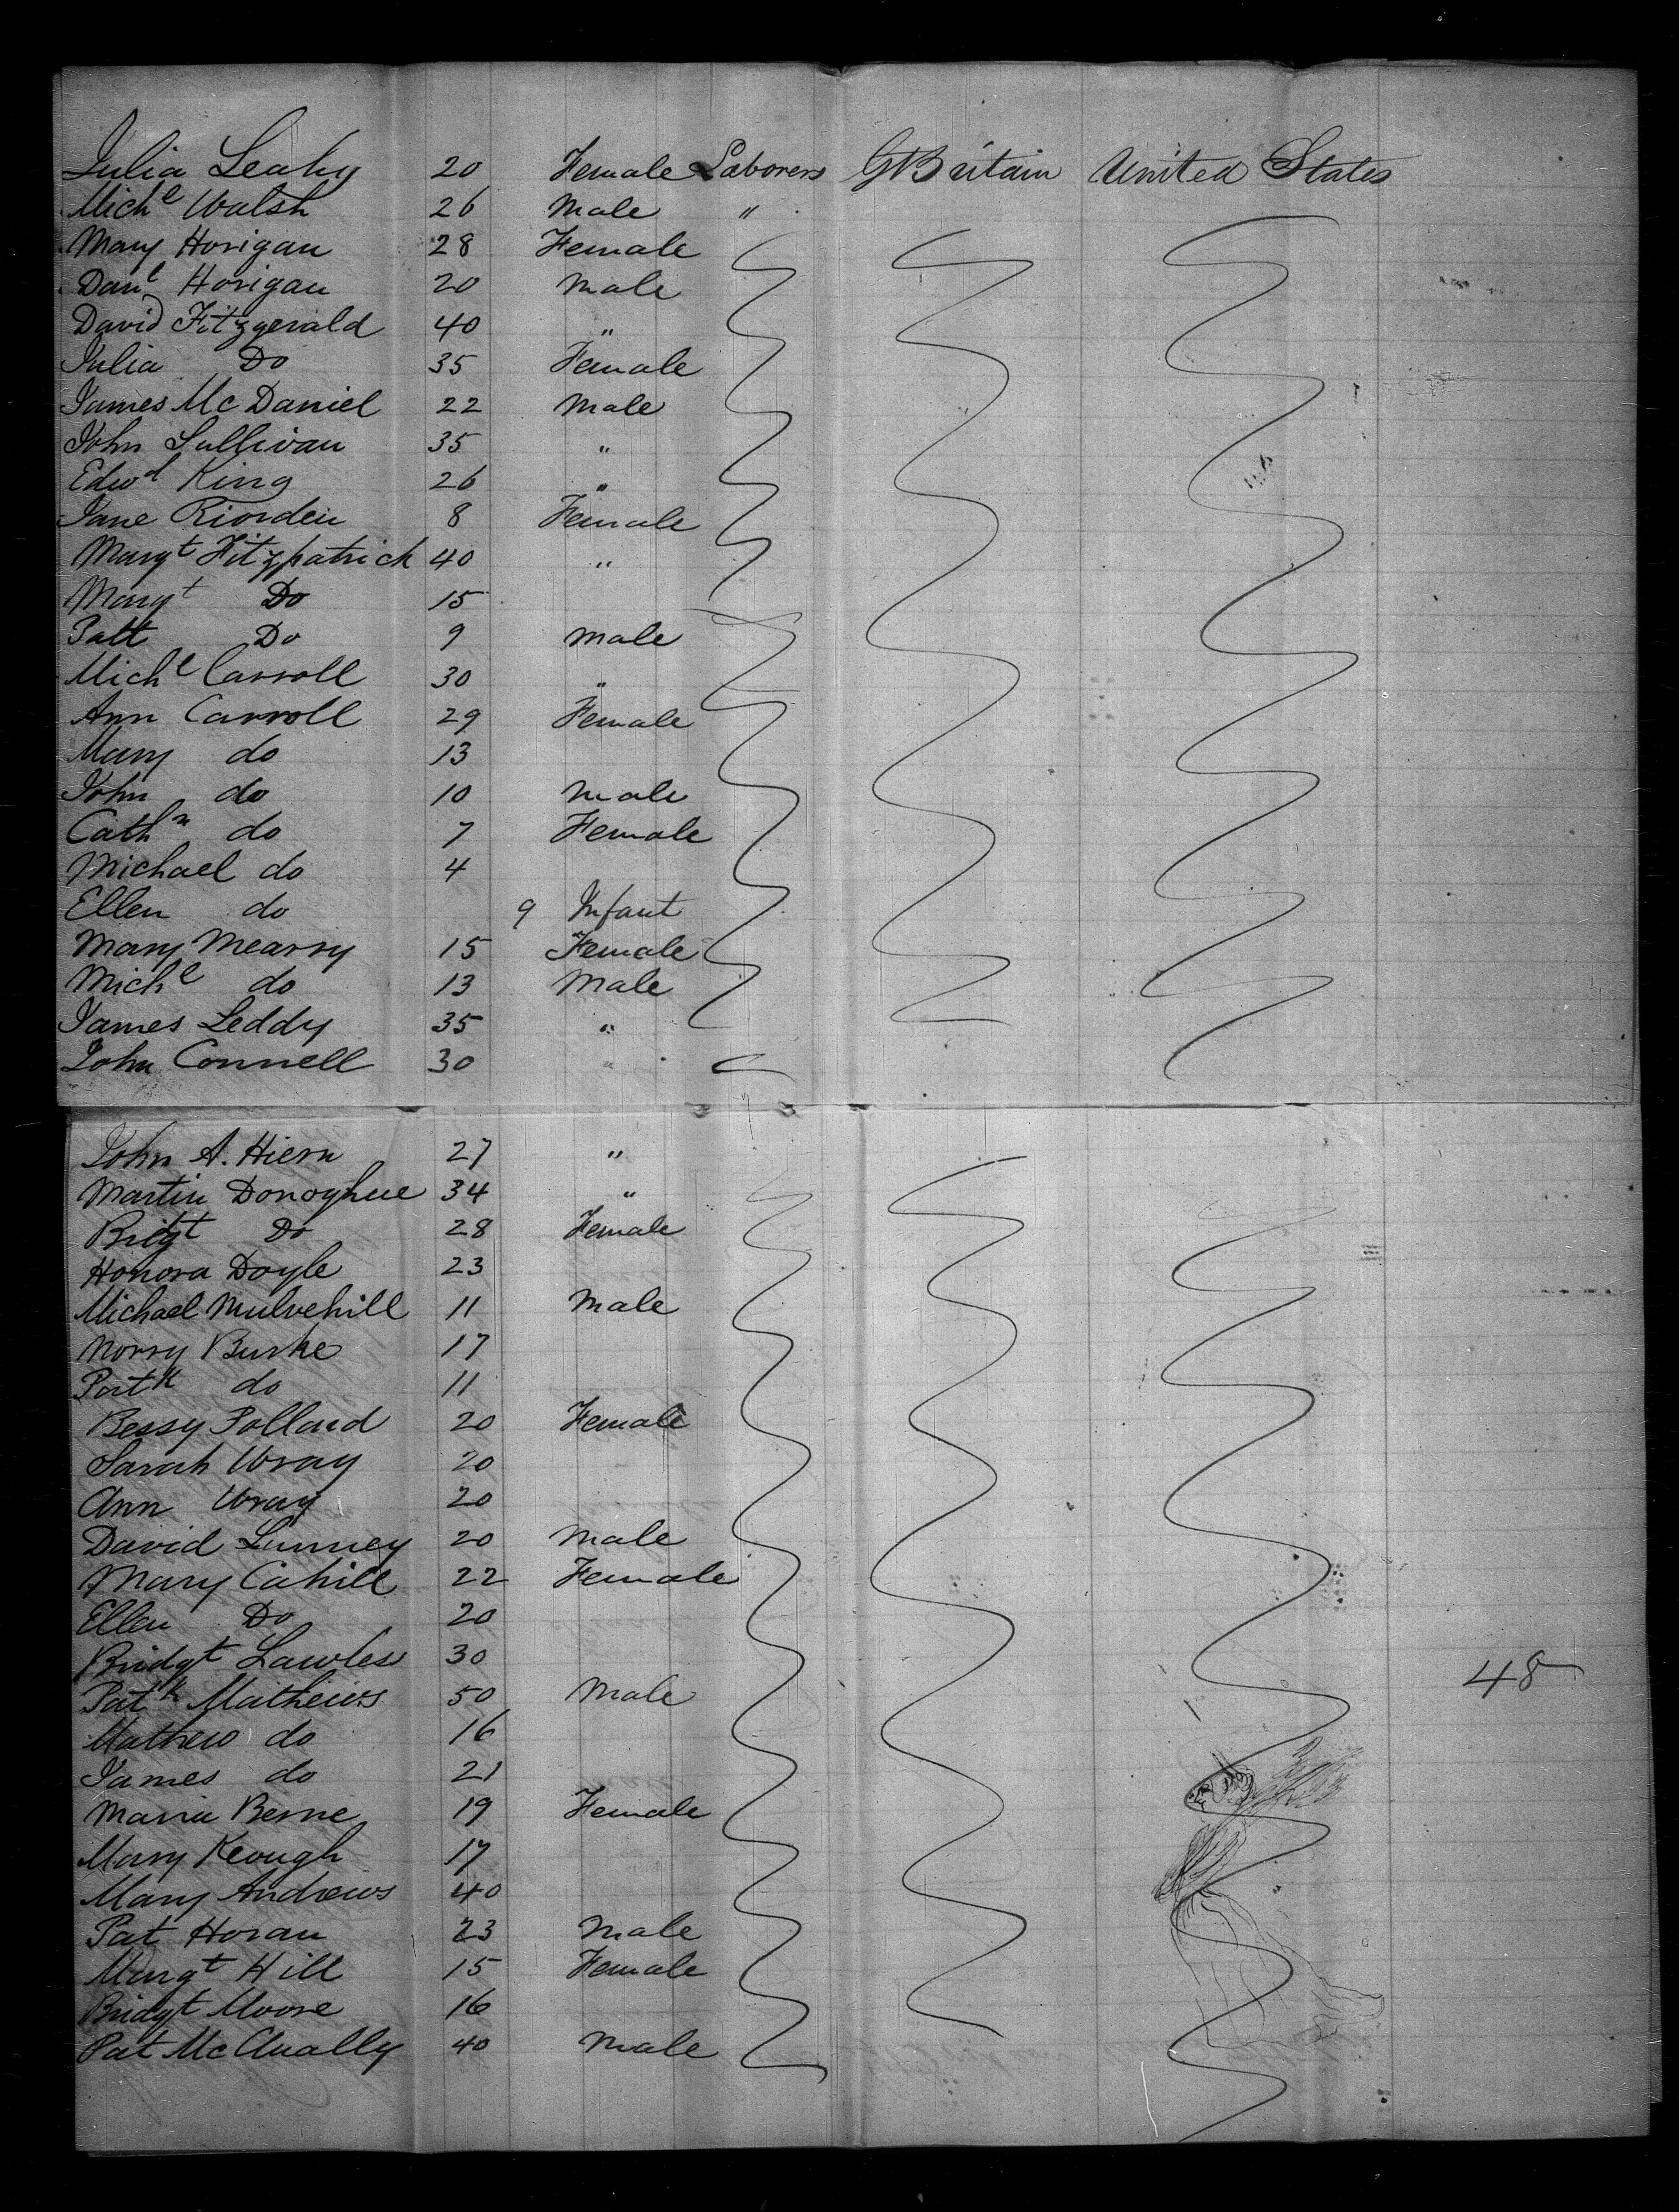 Julia Leahy 20 Female Laborers G Britain United States
Michl Walsh 26 Male "
Mary Horigan 28 Female
Danl Horigan 20 Male
David Fitzgerald 40 "
Julia Do 35 Female
James McDaniel 22 Male
John Sullivan 35 "
Edwd King 26 "
Jane Riorden 8 Female
Margt Fitzpatrick 40 "
Margt Do 15
Patt Do 9 Male
Michl Carroll 30 "
Ann Carroll 29 Female
Mary do 13
John do 10 Male
Cathn do 7 Female
Michael do 4
Ellen do 9 Infant
Mary Mearry 15 Female
Michl do 13 Male
James Leddy 35 "
John Connell 30 "
John A. Hiern 27 "
Martin Donoghue 34 "
Bridgt Do 28 Female
Honora Doyle 23
Michael Mulvehill 11 Male
Norry Burke 17
Patk do 11
Bessy Pollard 20 Female
Sarah Wray 20
Ann Wray 20
David Lunney 20 Male
Mary Cahill 22 Female
Ellen Do 20
Bridgt Lawles 30
Patk Mathews 50 Male 48
Mathew do 16
James do 21
Maria Berne 19 Female
Mary Keough 17
Mary Andrews 40
Pat Horan 23 Male
Margt Hill 15 Female
Bridgt Moore 16
Pat 40 Male